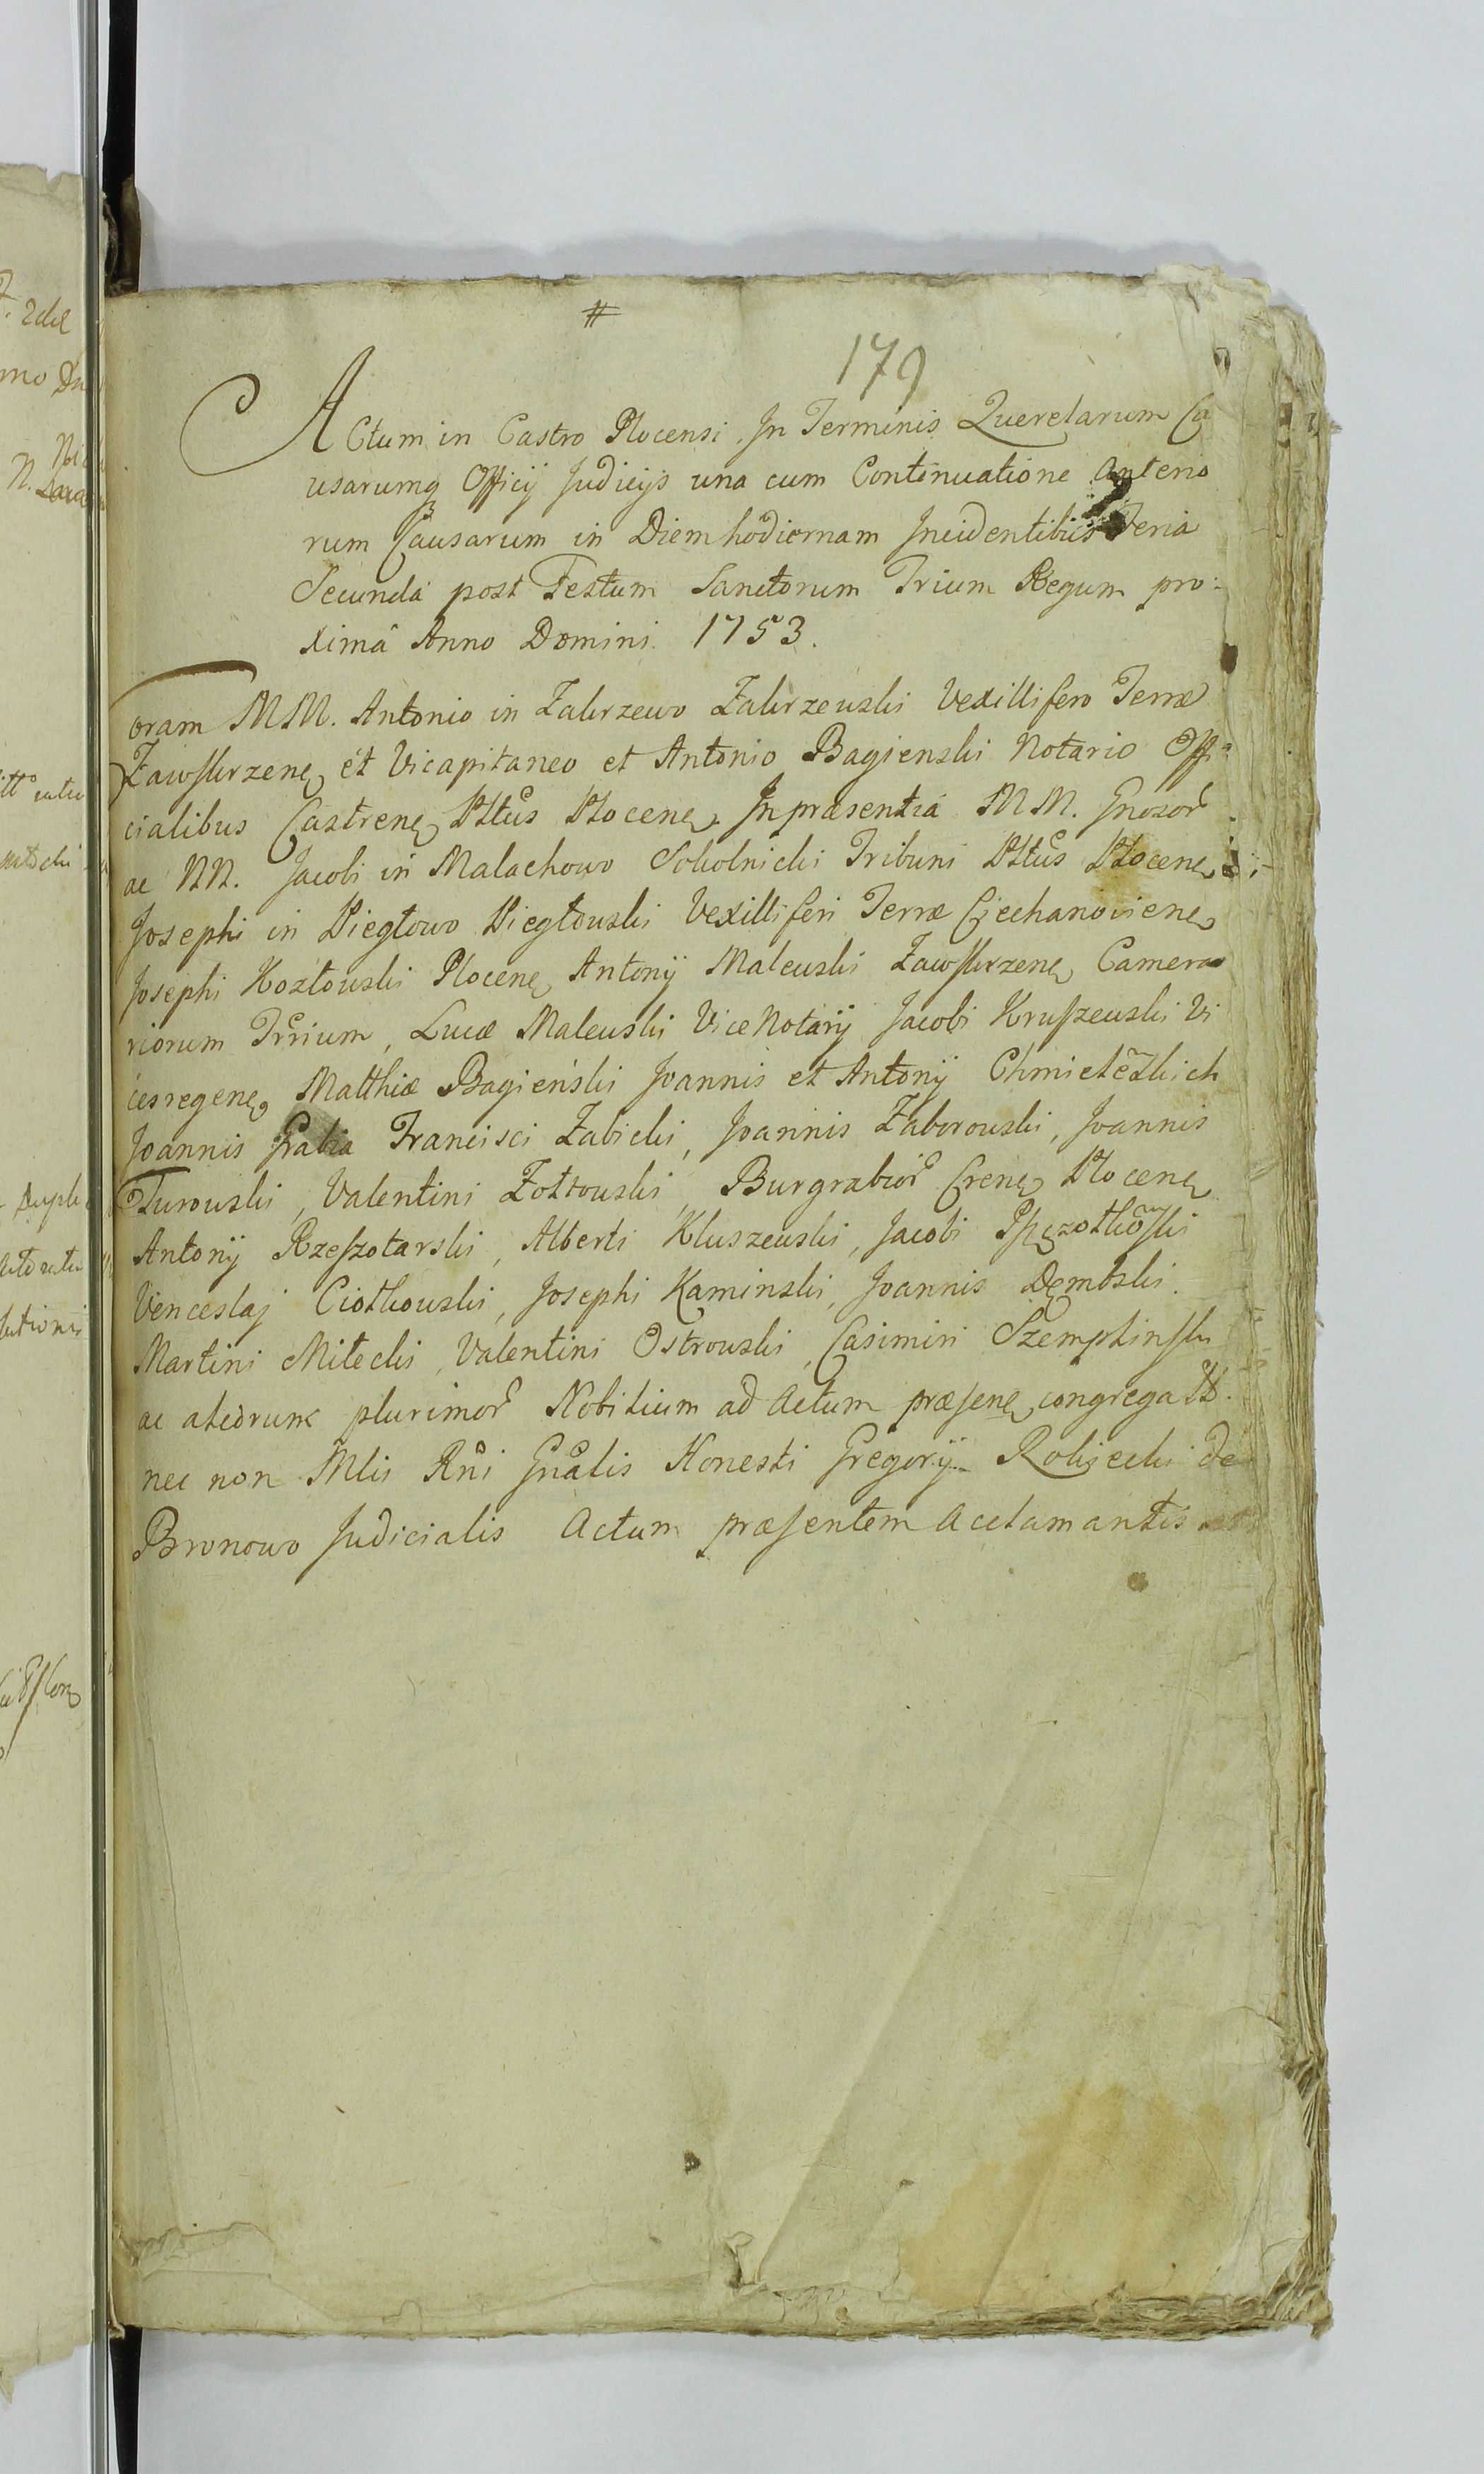 #
179
Actum in Castro Plocensi. In Terminis Querelarum Ca
usarumq Officij Judicijs una cum Continuatione anterio
rum Causarum in Diem hodiernam Incidentibus Feria
Secunda post Festum Sanctorum Trium Regum pro:
ximâ Anno Domini 1753.
Coram MM. Antonio in Zakrzewo Zakrzewski Vexillifero Terræ
Zawskrzenę et Vicapitaneo et Antonio Bagienski Notario Offi
cialibus Castrenę Pltus Plocenę Inpræsentiá MM. Gnosor
ac NN. Jacobi in Malachowo Sokolnicki Tribuni Pltus Plocenę
Josephi in Piegłowo Piegłowski Vexilliferi Terræ Ciechanovienę
Josephi Kozłowski Plocenę Antonij Malewski Zawskrzenę Camera
riorum Trrium, Lucæ Malewski ViceNotarij Jacobi Kruszewski Vi
cesregenę Matthiæ Bagieński Joannis et Antonij
Joannis Grabia Francisci Zabicki, Joannis Zaborowski, Joannis
Turowski, Valentini Żółtowski, Burgrabior Crenę Plocenę
Antonij Rzeszotarski, Alberti Kluszewski, Jacobi
Venceslaj Ciołkowski, Josephi Kaminski, Joannis Dembski.
Martini Milecki, Valentini Ostrowski, Casimiri Szemplinsku
ac aliorum plurimor Nobilium ad Actum præsenę congregatt.
nec non Mlis Rni Gnalis Honesti Gregorij Rokicki de
Bronowo Judicialis Actum præsentem Acclamantis